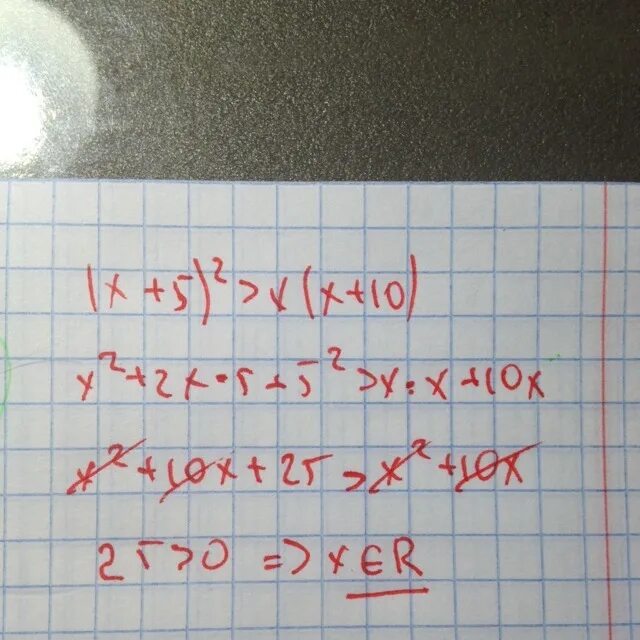 (x + 5)² > x (x + 10)
x² + 2x · 5 + 5² > x · x + 10x
x² + 10x + 25 > x² + 10x
25 > 0 => x ∈ R